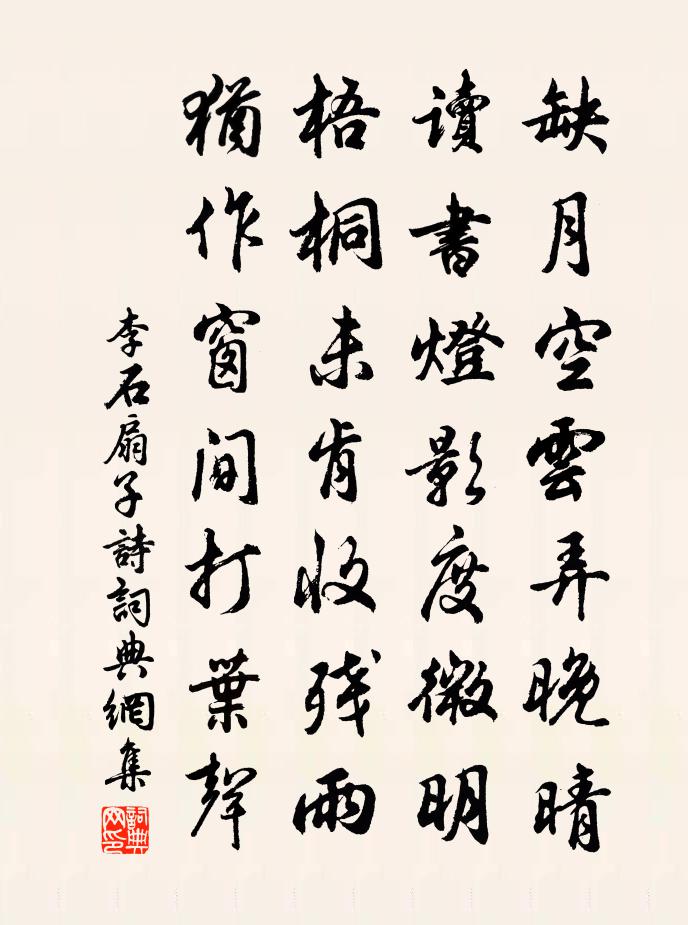 缺月空雲弄晚晴
讀書燈影度微明
梧桐未肯收残雨
猶作窗間打葉聲
李石扇子詩詞典網集
詞典
网印